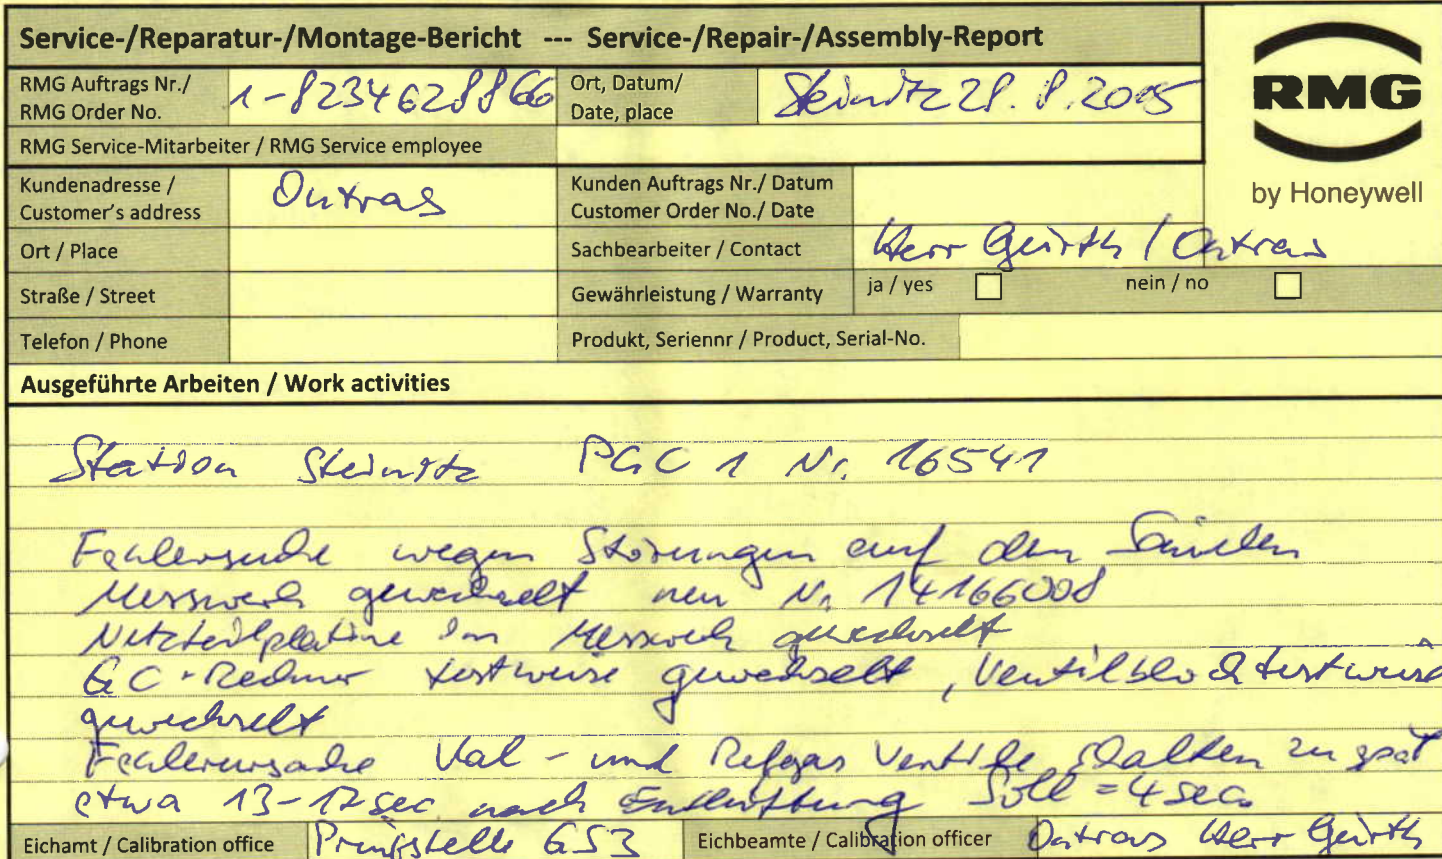 Service-/Reparatur-/Montage-Bericht --- Service-/Repair-/Assembly-Report
RMG Auftrags Nr./
RMG Order No.
1-8234628866
Ort, Datum/
Date, place
Steinitz 28.8.2015
RMG Service-Mitarbeiter / RMG Service employee
RMG
by Honeywell
Kundenadresse /
Customer's address
Ontras
Kunden Auftrags Nr./ Datum
Customer Order No./ Date
Ort / Place
Sachbearbeiter / Contact
Herr Geirth / Ontras
Straße / Street
Gewährleistung / Warranty
ja / yes
nein / no
Telefon / Phone
Produkt, Seriennr / Product, Serial-No.
Ausgeführte Arbeiten / Work activities
Station Steinitz PGC 1 Nr. 16541
Fehlersuche wegen Störungen auf den Säulen
Messwerk gewechselt neu Nr 14166008
Netzteilplatine im Messwerk gewechselt
GC-Rechner testweise gewechselt, Ventilblock testweise
gewechselt
Fehlerursache Kal- und Refgas Ventile schalten zu spät
etwa 13-17 sec nach Entlüftung Soll = 4 sec.
Eichamt / Calibration office
Prüfstelle GS3
Eichbeamte / Calibration officer
Ontras Herr Geirth